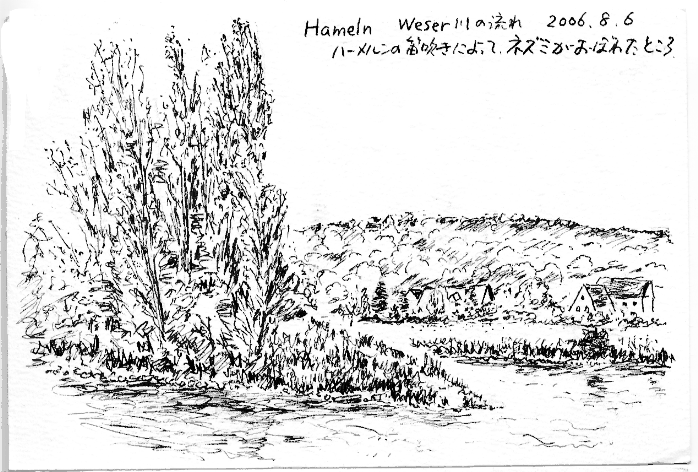 Hameln Weser川の流れ 2006.8.6
ハーメルンの笛吹きによって、ネズミがおぼれたところ